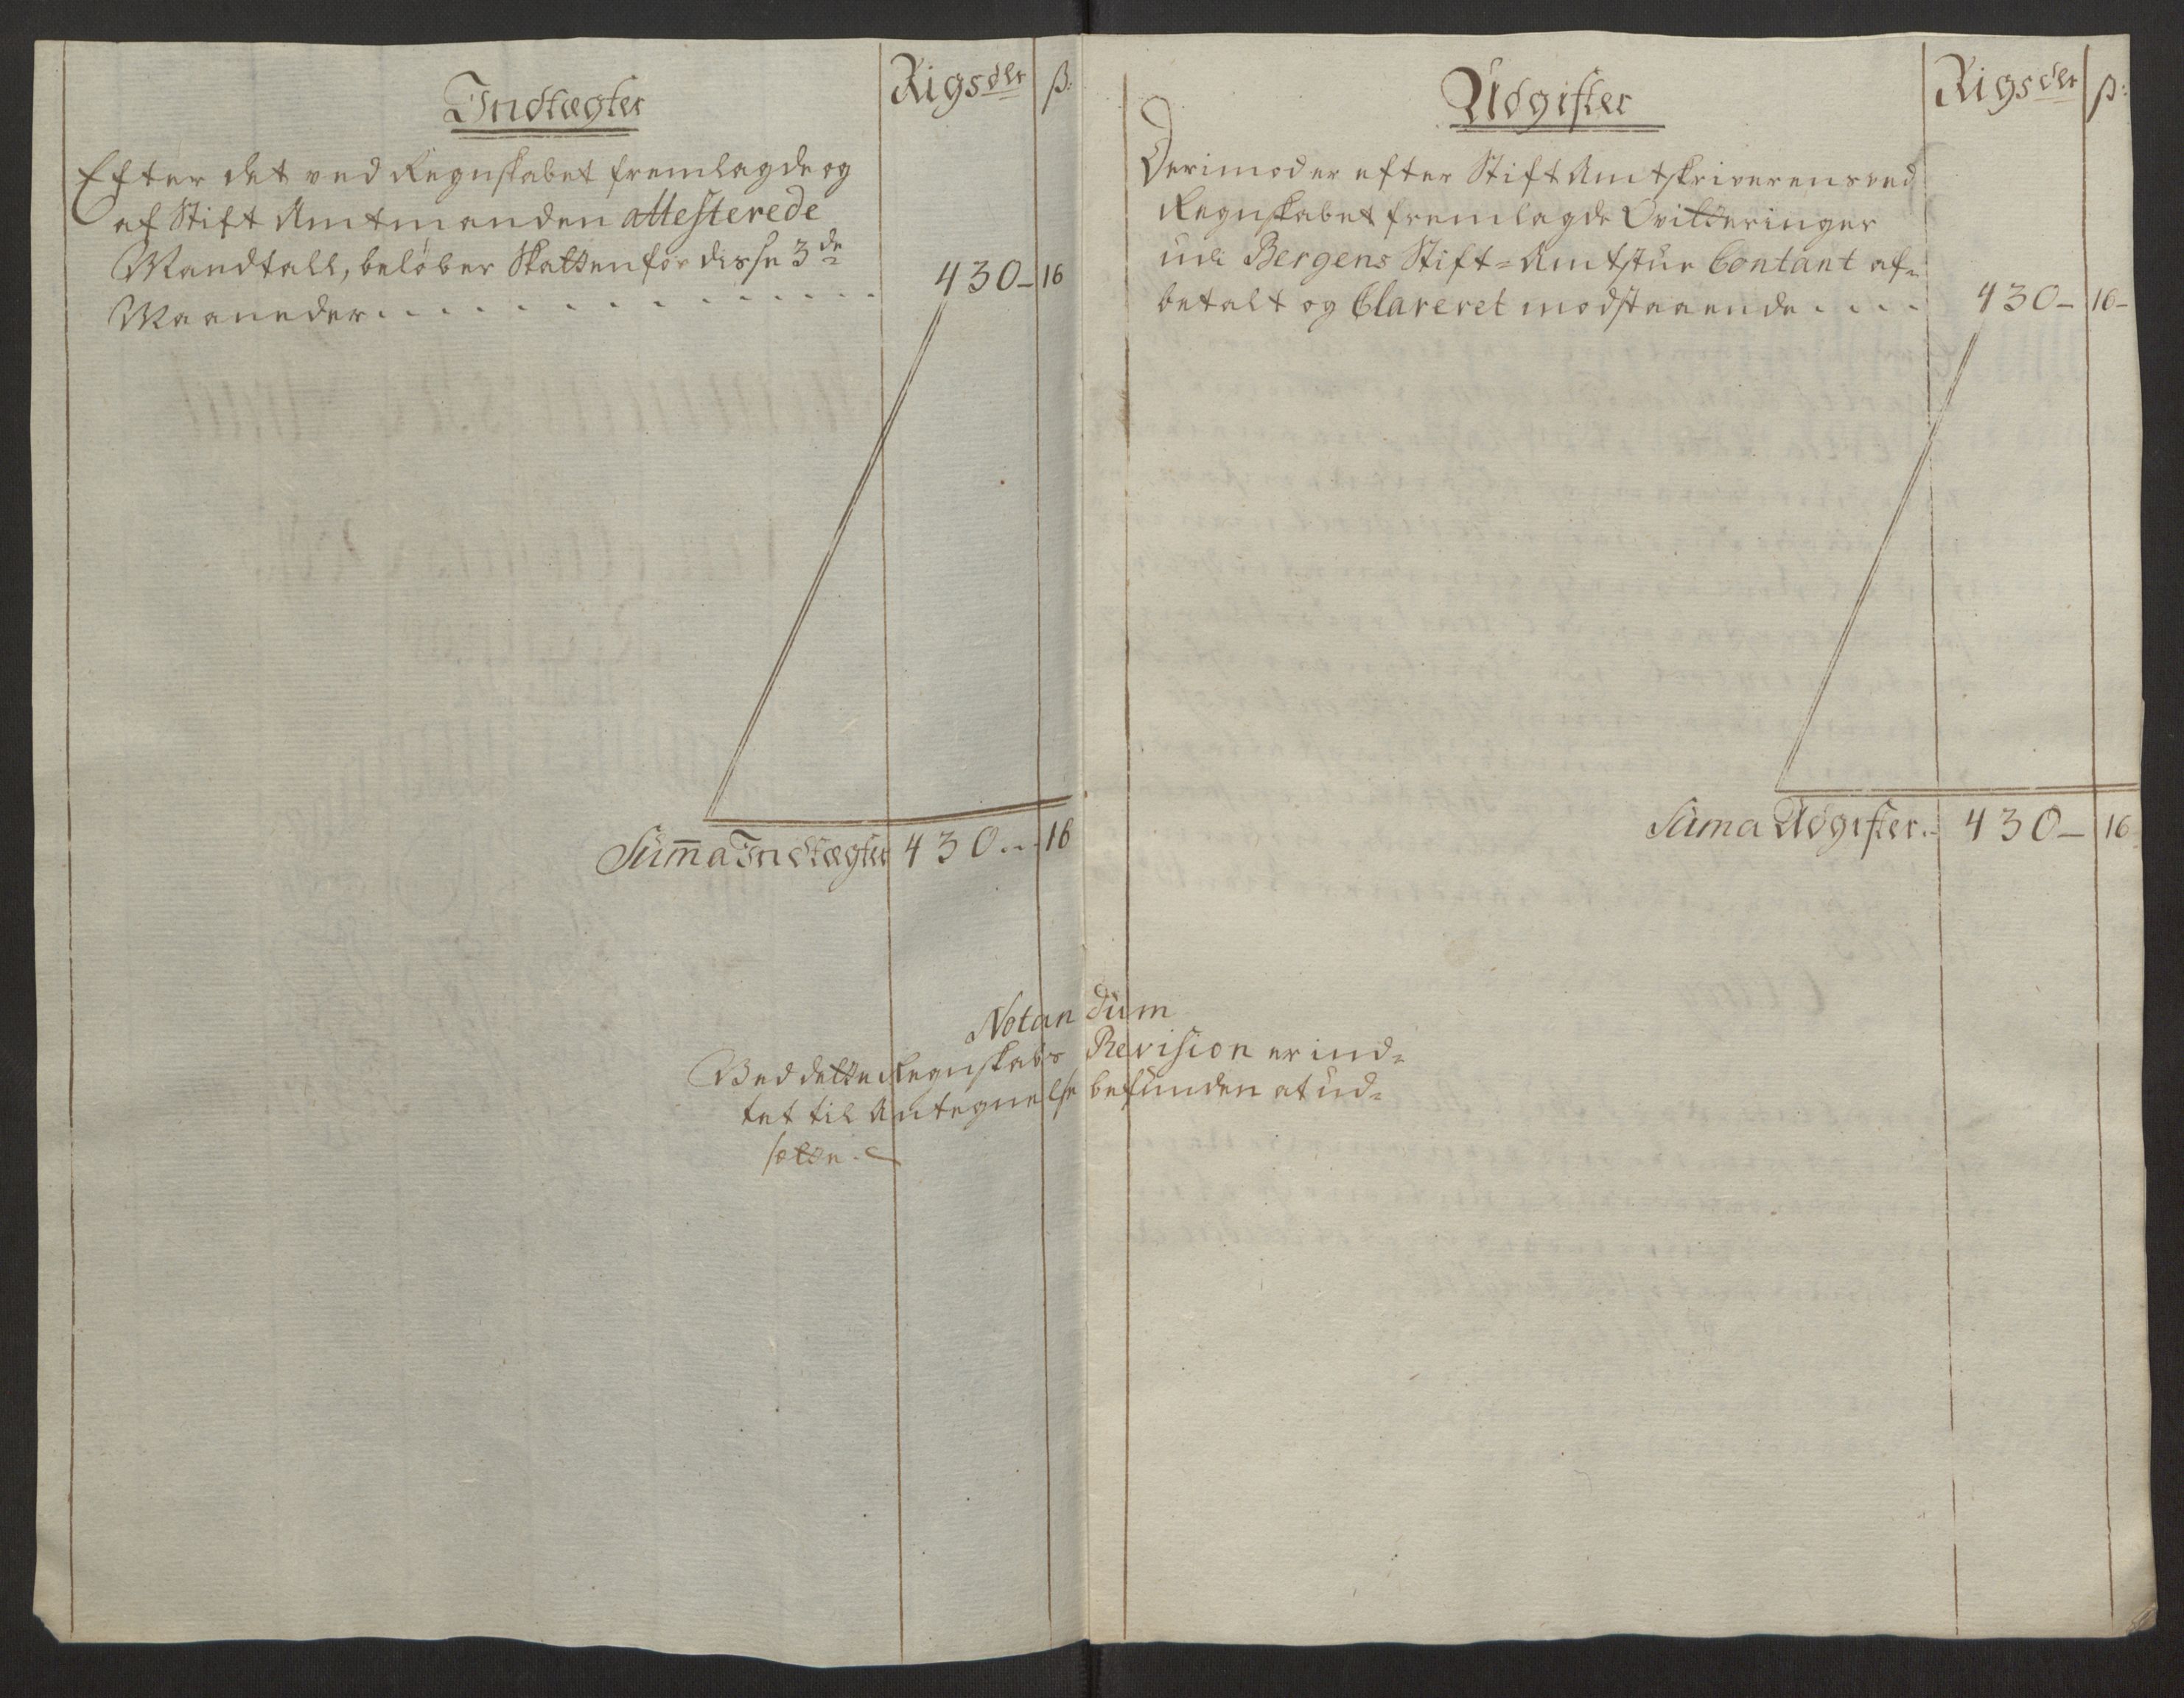 Indtægter
Rigsdlr ß:
Efter det ved Regnskabet fremlagde og
af Stift Amtmanden attesterede
Mandtall, beløber Skatten for disse 3de
Maaneder . . . . . . . . . . . . . . 430 – 16
Summa Indtægter 430 . . . 16
Udgifter
Rigsdlr ß:
Derimod er efter Stift Amtskriverens ved
Regnskabet fremlagde Qvitteringer
udi Bergens Stift=Amtstue Contant af=
betalt og Clareret modstaaende . . . . 430 – 16 –
Suma Udgifter . – 430 – 16
Notandum
Ved dette Regnskabs Revision er ind=
tet til Antegnelse befunden at ud=
sætte.